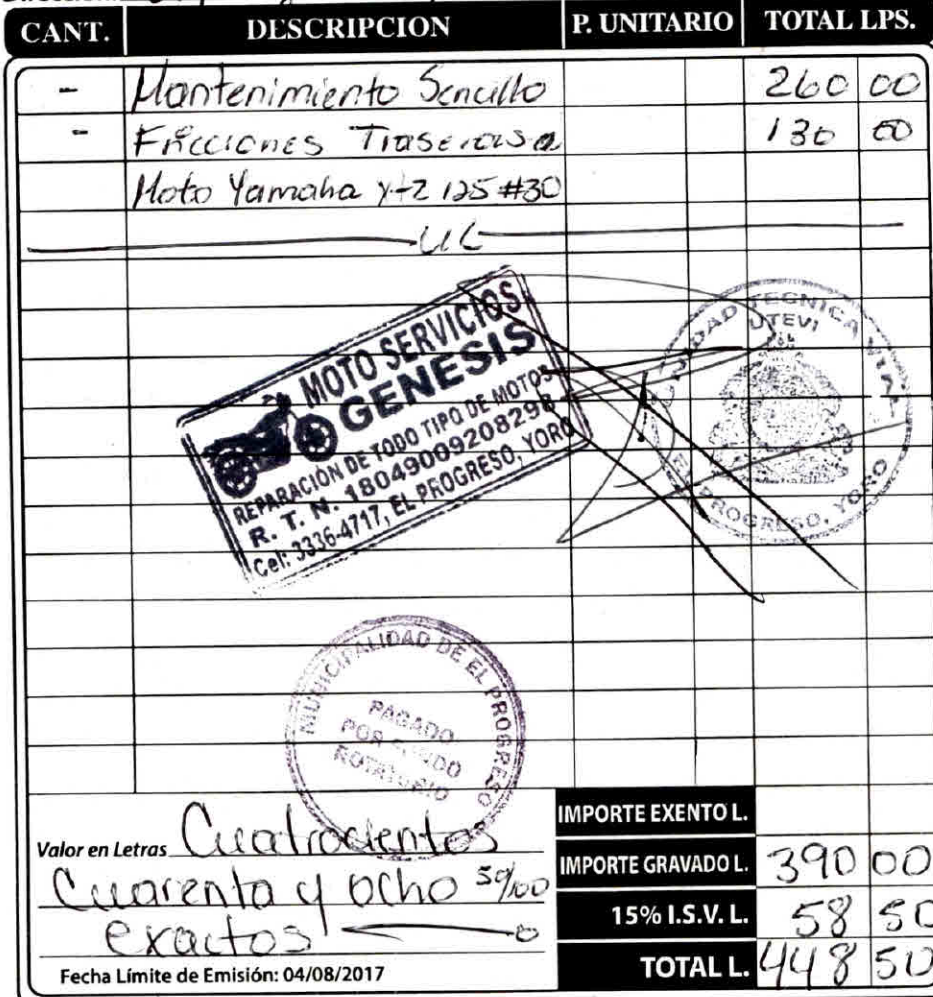 CANT. DESCRIPCION P. UNITARIO TOTAL LPS.
- Mantenimiento Sencillo 260 00
- Fricciones Traseras 130 00
Moto Yamaha 125 #30
UL
MOTO SERVICIOS
GENESIS
REPARACIÓN DE TODO TIPO DE MOTOS
R. T. N. 18049009208298
Cel: 3336-4717, EL PROGRESO, YORO
UNIDAD TECNICA VIAL
UTEVI
EL PROGRESO, YORO
MUNICIPALIDAD DE EL PROGRESO
PAGADO
POR FONDO
ROTATORIO
IMPORTE EXENTO L.
Valor en Letras Cuatrocientos
IMPORTE GRAVADO L. 390 00
Cuarenta y ocho 50/100
15% I.S.V. L. 58 50
exactos
TOTAL L. 448 50
Fecha Límite de Emisión: 04/08/2017